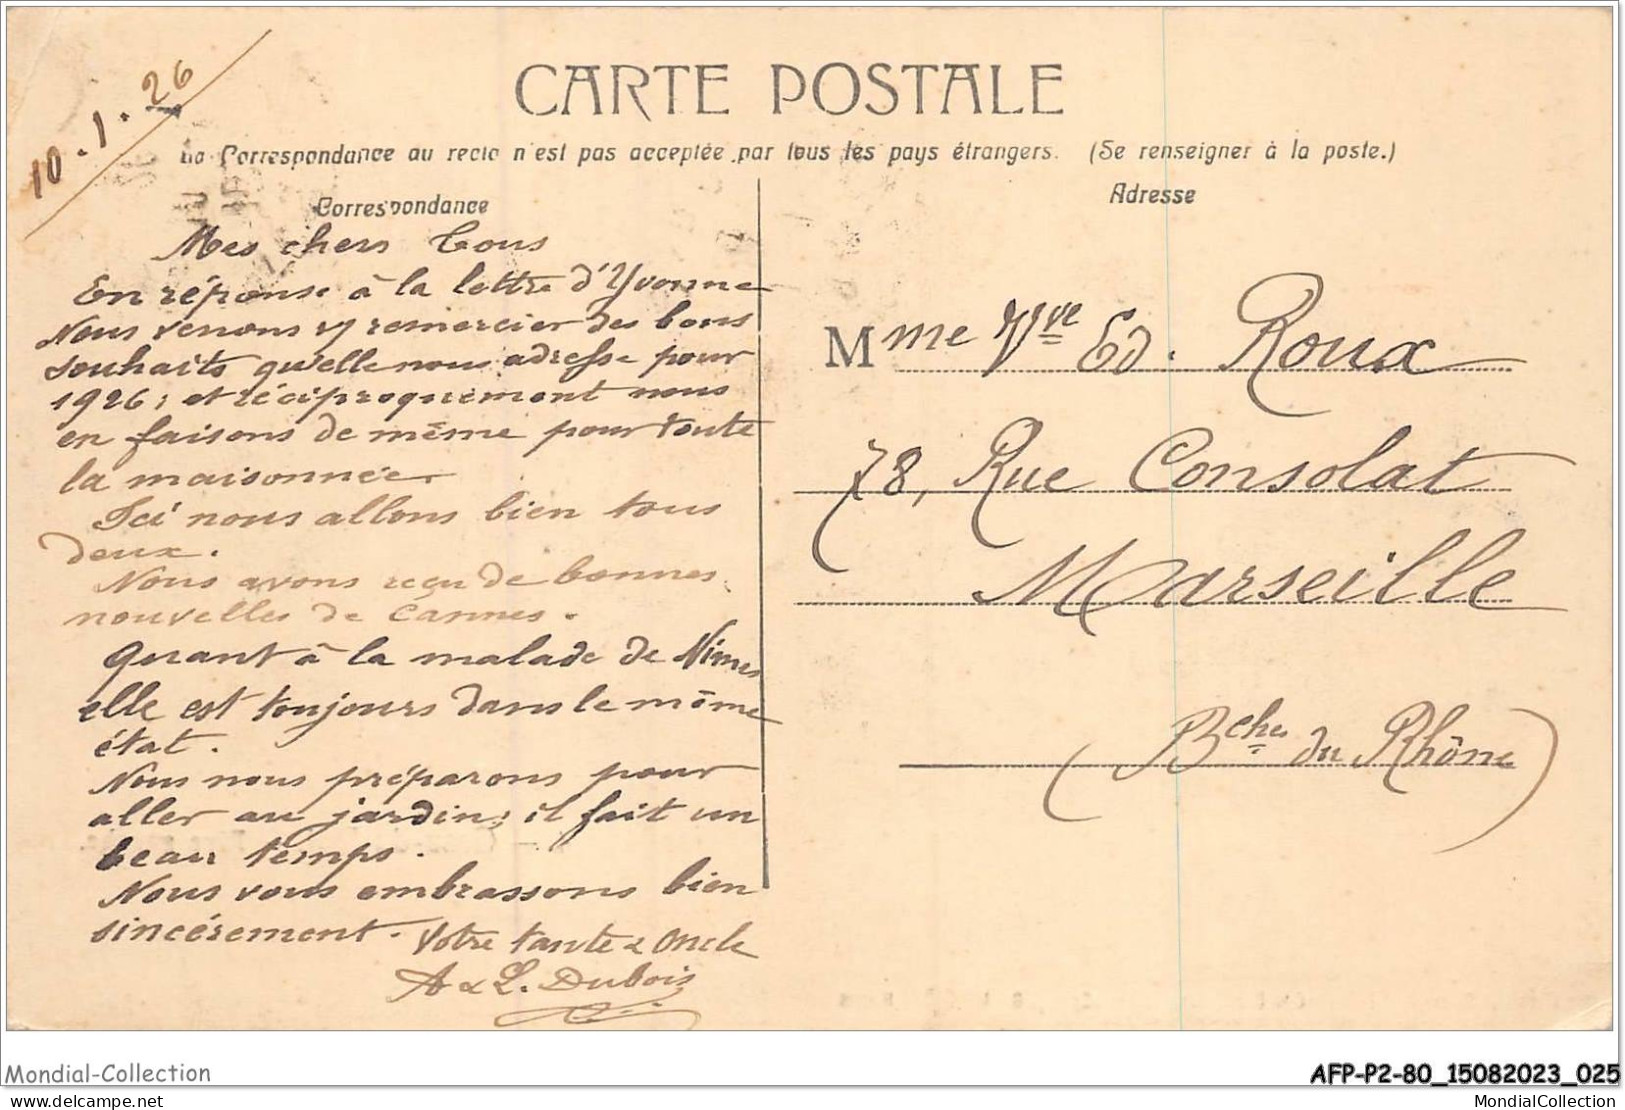 10.1.26
CARTE POSTALE
La Correspondance au recto n'est pas acceptée par tous les pays étrangers. (Se renseigner à la poste.)
Correspondance
Mes chers Tous
En réponse à la lettre d'Yvonne
Nous venons vs remercier des bons
souhaits qu'elle nous adresse pour
1926; et réciproquement nous
en faisons de même pour toute
la maisonnée.
Ici nous allons bien tous
deux.
Nous avons reçu de bonnes
nouvelles de Cannes.
Quant à la malade de Nimes
elle est toujours dans le même
état.
Nous nous préparons pour
aller au jardin; il fait un
beau temps.
Nous vous embrassons bien
sincèrement. Votre tante & Oncle
A & L. Dubois
Adresse
Mme Vve Ed. Roux
78, Rue Consolat
Marseille
(Bches du Rhône)
Mondial-Collection
AFP-P2-80_15082023_025
delcampe.net
MondialCollection